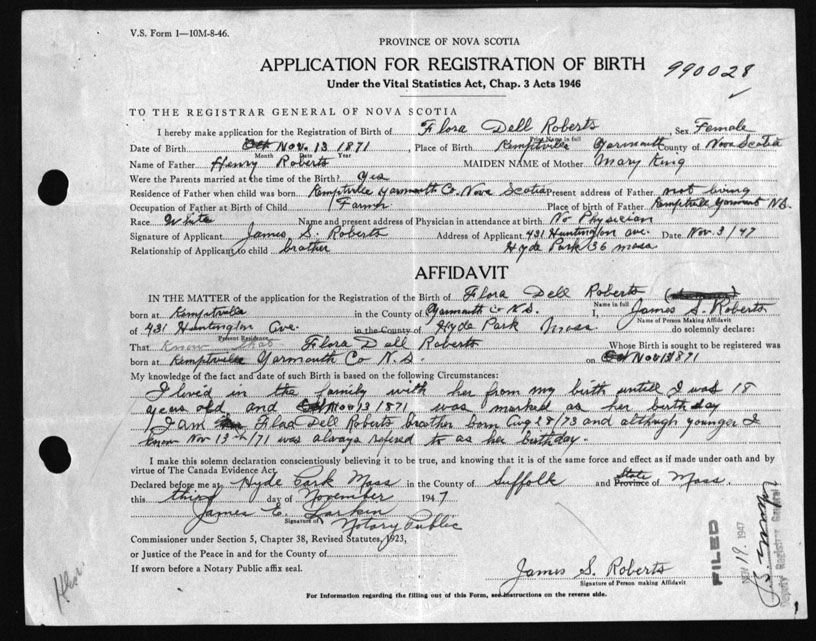 V.S. Form 1—10M-8-46.
PROVINCE OF NOVA SCOTIA
APPLICATION FOR REGISTRATION OF BIRTH
990028
Under the Vital Statistics Act, Chap. 3 Acts 1946
TO THE REGISTRAR GENERAL OF NOVA SCOTIA
I hereby make application for the Registration of Birth of Flora Dell Roberts, Sex Female
Print Name in full
Date of Birth Nov. 13 1871 Place of Birth Kemptville Yarmouth County of Nova Scotia
Month Date Year
Name of Father Henry Roberts MAIDEN NAME of Mother Mary King
Were the Parents married at the time of the Birth? Yes
Residence of Father when child was born Kemptville Yarmouth Co. Nova Scotia Present address of Father not living
Occupation of Father at Birth of Child Farmer Place of birth of Father Kemptville Yarmouth N.S.
Race White Name and present address of Physician in attendance at birth No Physician
Signature of Applicant James S. Roberts Address of Applicant 431 Huntington ave. Date Nov. 3/47
Relationship of Applicant to child brother Hyde Park 36 mass
AFFIDAVIT
IN THE MATTER of the application for the Registration of the Birth of Flora Dell Roberts
Name in full
born at Kemptville in the County of Yarmouth Co N.S. I, James S. Roberts
Name of Person Making Affidavit
of 431 Huntington Ave. in the County of Hyde Park Mass do solemnly declare:
Present Residence
That Know that Flora Dell Roberts Whose Birth is sought to be registered was
born at Kemptville Yarmouth Co N.S. on Nov 13 1871
My knowledge of the fact and date of such Birth is based on the following Circumstances:
I lived in the family with her from my birth untill I was 18
years old and Nov 13/1871 was marked as her birthday
I am Flad Dell Roberts brother born Aug 28/73 and although younger I
know Nov 13th/71 was always refered to as her birthday.
I make this solemn declaration conscientiously believing it to be true, and knowing that is of the same force and effect as if made under oath and by
virtue of The Canada Evidence Act.
Declared before me at Hyde Park Mass in the County of Suffolk and State Province of Mass.
this third day of November 1947
James E. Larkin
Signature of Notary Public
Commissioner under Section 5, Chapter 38, Revised Statutes, 1923,
or Justice of the Peace in and for the County of
If sworn before a Notary Public affix seal.
James S. Roberts
Signature of Person making Affidavit
For Information regarding the filling out of this Form, see instructions on the reverse side.
FILED
NOV 19 1947
Deputy Registrar General